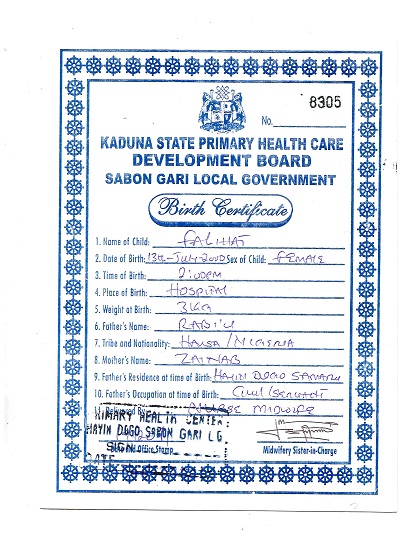 8305
No.
KADUNA STATE PRIMARY HEALTH CARE
DEVELOPMENT BOARD
SABON GARI LOCAL GOVERNMENT
Birth Certificate
1. Name of Child: FALILAT
2. Date of Birth: 13th-JULY-2000 Sex of Child: FEMALE
3. Time of Birth: 2:00PM
4. Place of Birth: HOSPITAL
5. Weight at Birth: 3KG
6. Father's Name: RABIU
7. Tribe and Nationality: HAUSA/NIGERIA
8. Mother's Name: ZAINAB
9. Father's Residence at time of Birth: HAYIN DOGO SAMARU
10. Father's Occupation at time of Birth: CIVIL SERVANT
11. Delivered By NURSE MIDWIFE
PRIMARY HEALTH CENTER
HAYIN DOGO SABON GARI LG
SIGN
Date and Office Stamp
DATE
Midwifery Sister-in-Charge